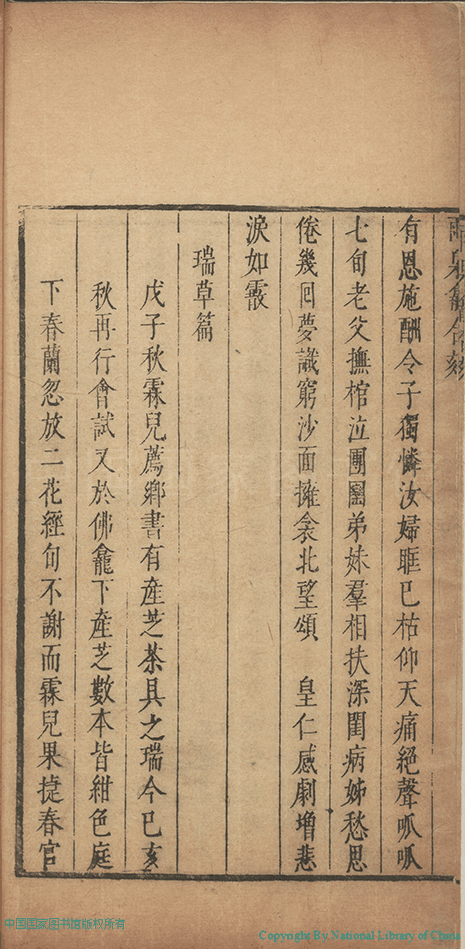 有恩施酬令子獨憐汝婦眶已枯仰天痛絕聲呱呱
七旬老父撫棺泣團圞弟妹羣相扶深閨病姊愁思
倦幾回夢識窮沙面擁衾北望頌　皇仁感劇增悲
淚如霰
瑞草篇
戊子秋霖兒薦鄉書有產芝茶具之瑞今己亥
秋再行會試又於佛龕下產芝數本皆紺色庭
下春蘭忽放二花經旬不謝而霖兒果捷春官
中国国家图书馆版权所有
Copyright By National Library of China